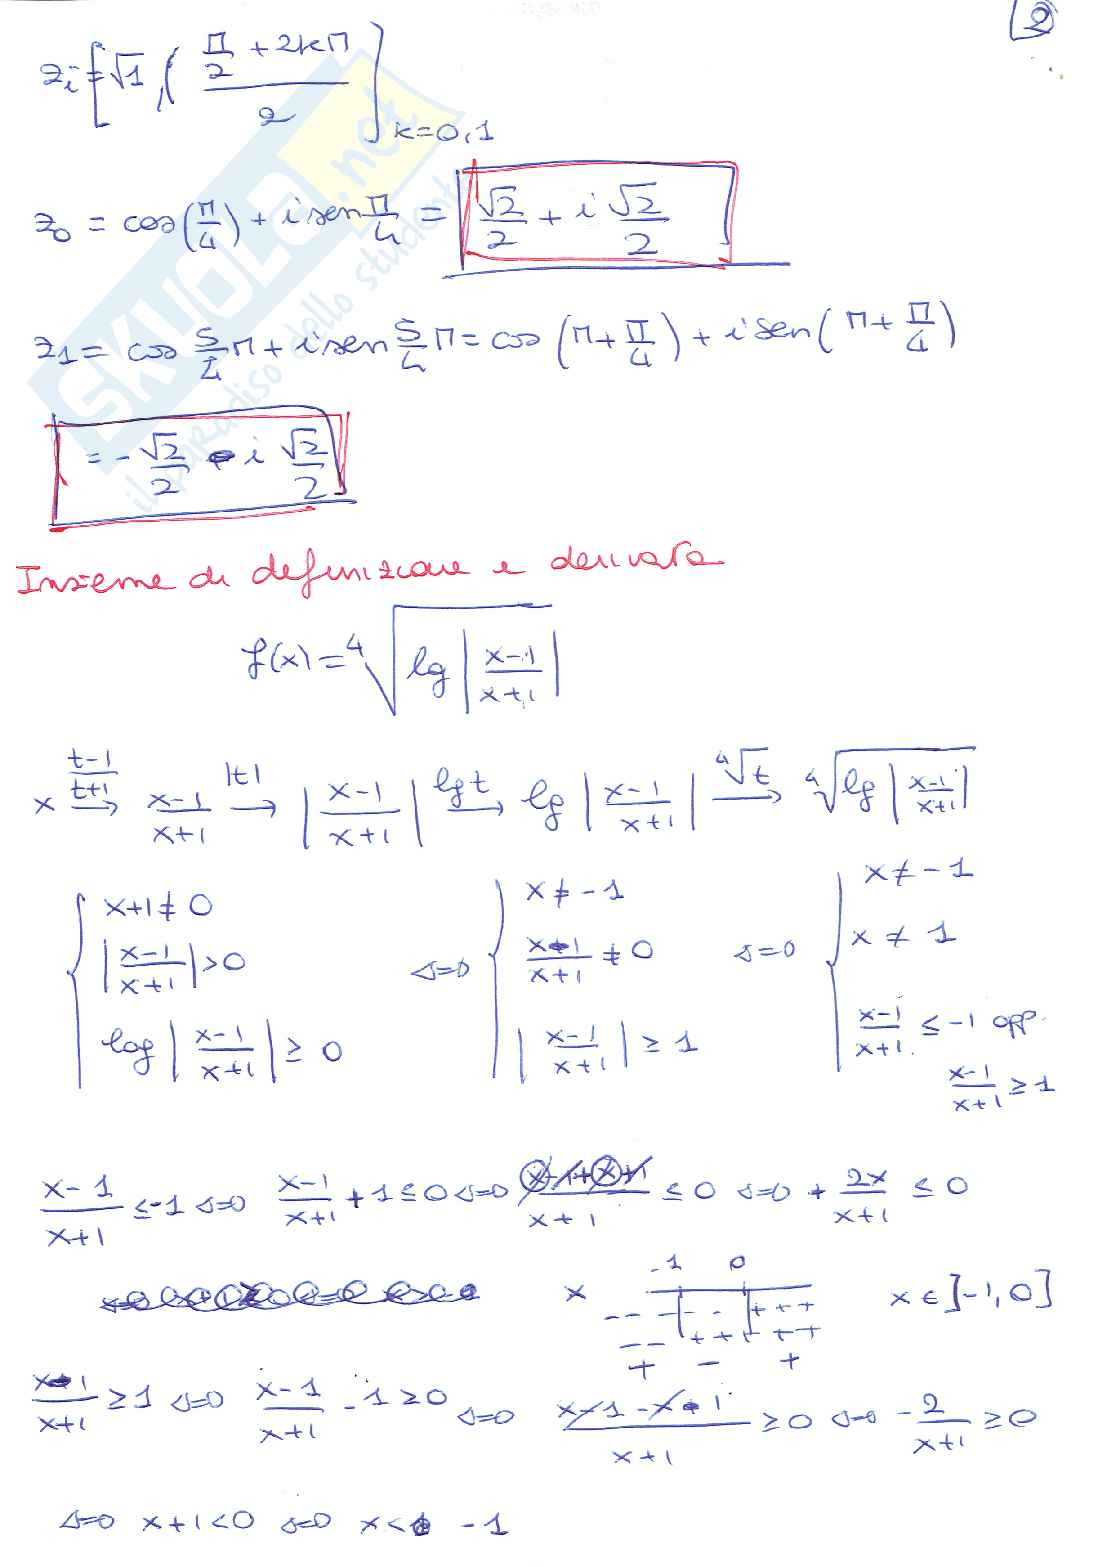 2
z_i = [√1, ( (π/2 + 2kπ) / 2 ]_{k=0,1}
z_0 = cos(π/4) + i sen π/4 = √2/2 + i √2/2
z_1 = cos 5/4 π + i sen 5/4 π = cos (π + π/4) + i sen (π + π/4)
= - √2/2 - i √2/2
Insieme di definizione e derivata
f(x) = ⁴√(lg |(x-1)/(x+1)|)
x →^{(t-1)/(t+1)} (x-1)/(x+1) →^{|t|} |(x-1)/(x+1)| →^{lg t} lg |(x-1)/(x+1)| →^{⁴√t} ⁴√(lg |(x-1)/(x+1)|)
{ x+1 ≠ 0 ; |(x-1)/(x+1)| > 0 ; log |(x-1)/(x+1)| ≥ 0 ⇔ { x ≠ -1 ; (x-1)/(x+1) ≠ 0 ; |(x-1)/(x+1)| ≥ 1 ⇔ { x ≠ -1 ; x ≠ 1 ; (x-1)/(x+1) ≤ -1 opp. (x-1)/(x+1) ≥ 1
(x-1)/(x+1) ≤ -1 ⇔ (x-1)/(x+1) + 1 ≤ 0 ⇔ (x-1+x+1)/(x+1) ≤ 0 ⇔ + 2x/(x+1) ≤ 0
x -1 0 x ∈ ]-1, 0]
-- - - - + + +
-- + + + + +
+ - +
(x-1)/(x+1) ≥ 1 ⇔ (x-1)/(x+1) - 1 ≥ 0 ⇔ (x-1-x-1)/(x+1) ≥ 0 ⇔ - 2/(x+1) ≥ 0
⇔ x+1 < 0 ⇔ x < -1
SKUOLA.net
il paradiso dello studente